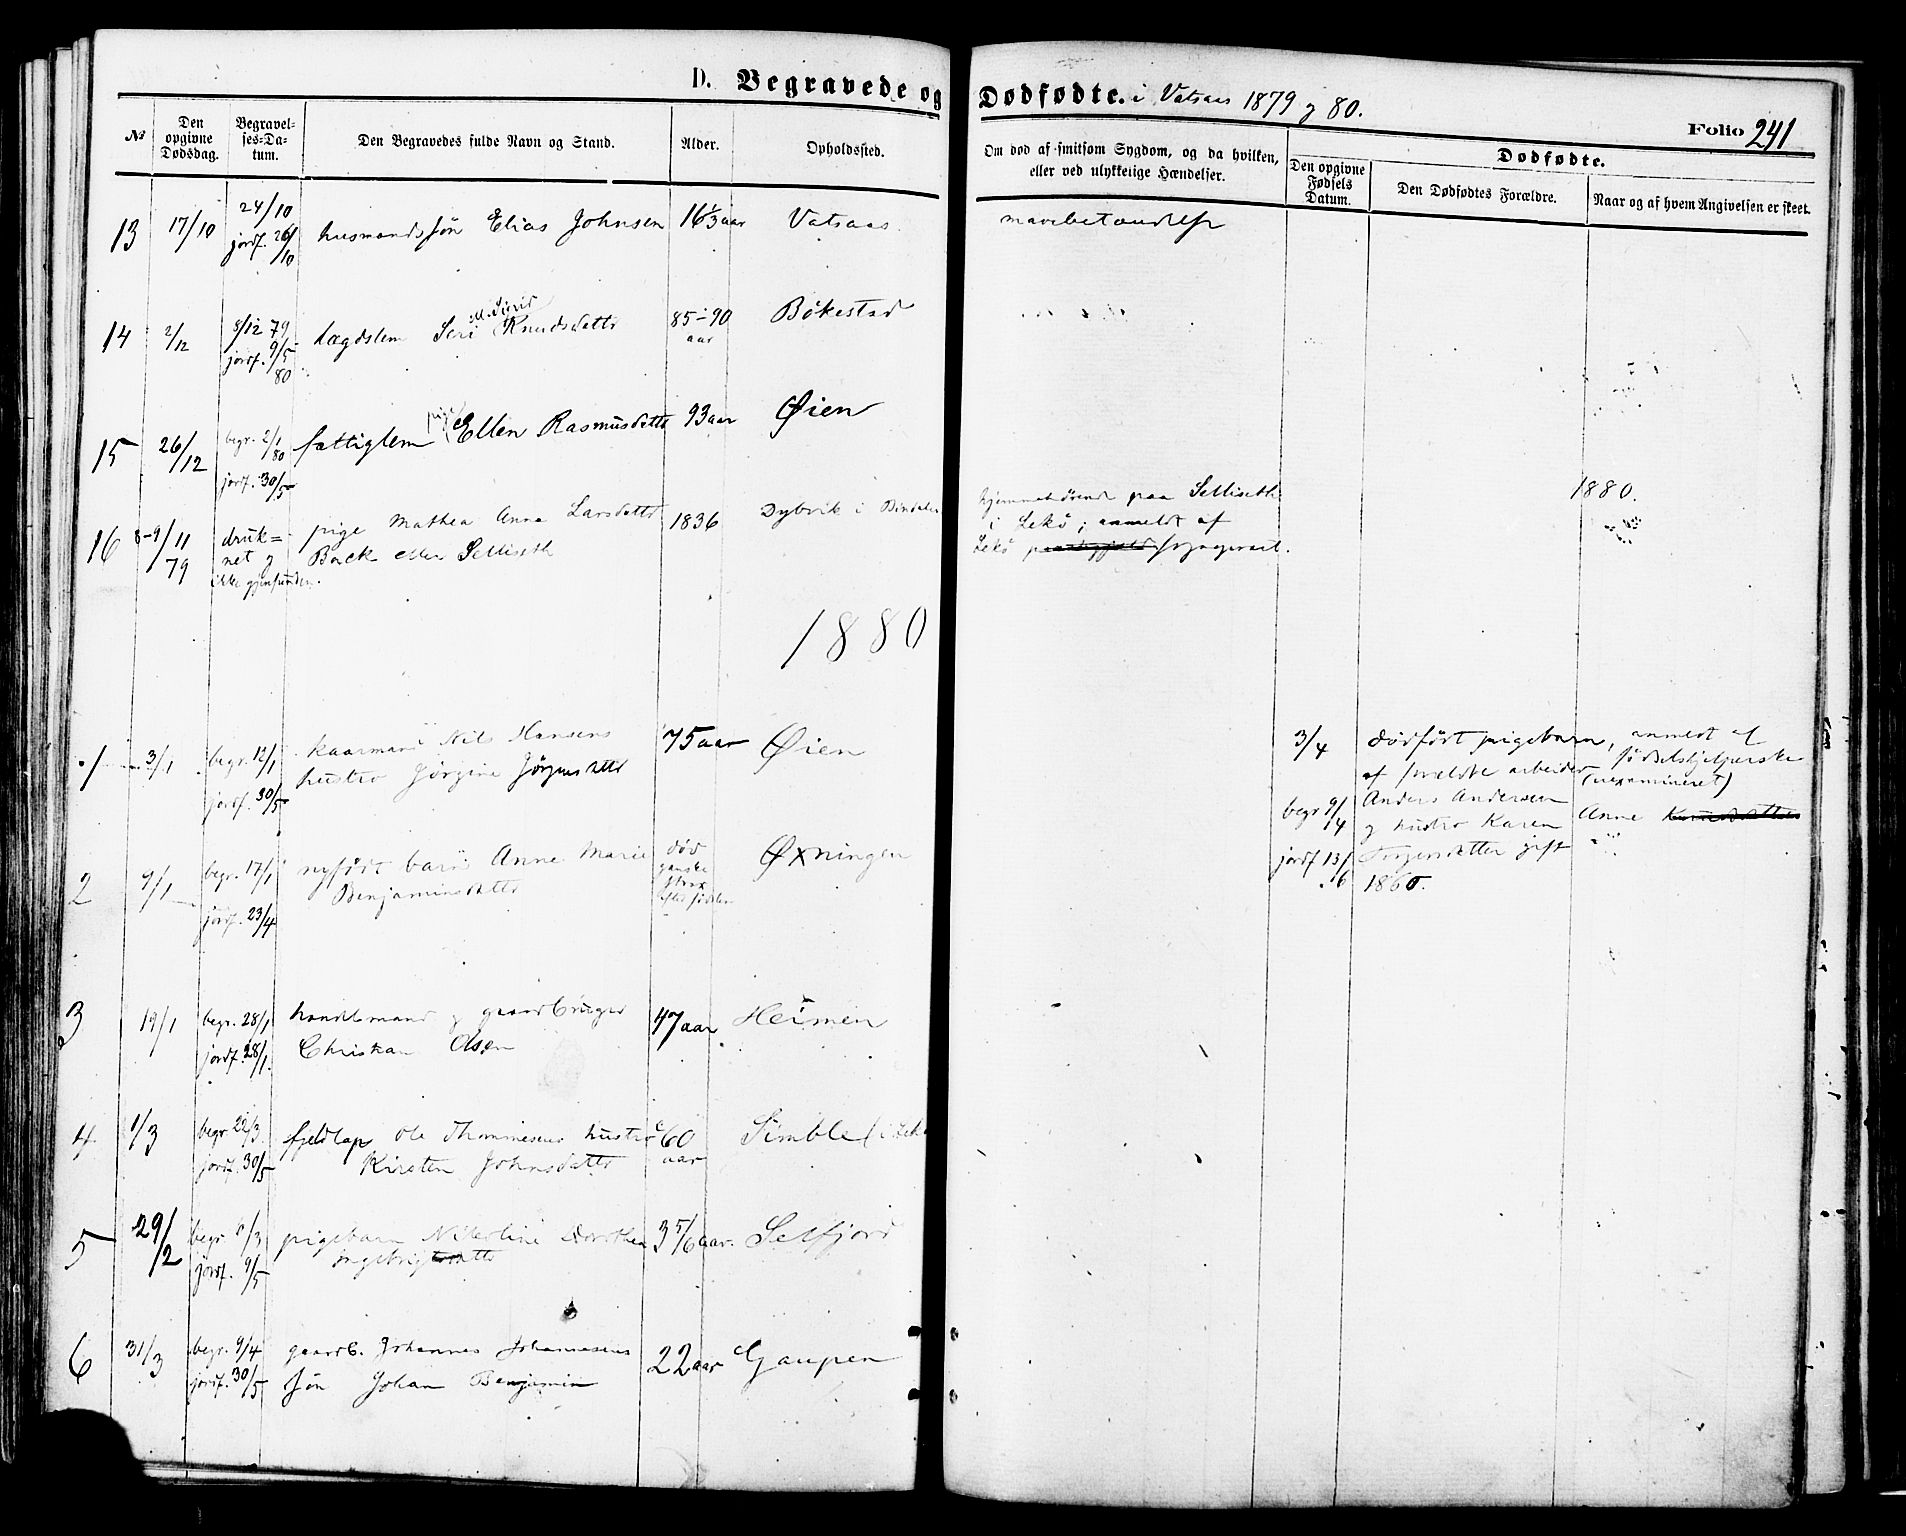 D. Begravede og Dødfødte. i Vatsaas 1879 g 80.
Folio 241
№
Den opgivne Dødsdag.
Begravel-ses-Da-tum.
Den Begravedes fulde Navn og Stand.
Alder.
Opholdssted.
Om død af smitsom Sygdom, og da hvilken,
eller ved ulykkelige Hændelser.
Dødfødte.
Den opgivne Fødsels Datum.
Den Dødfødtes Forældre.
Naar og af hvem Angivelsen er skeet.
13 17/10 24/10 jordf. 26/10 husmands søn Elias Johnsen 16 1/3 aar Vatsaas mavebetændelse
14 2/12 8/12 79 jordf. 9/5 80 lægdslem Siri Knudsdattr 85-90 aar Bökestad
15 26/12 begr. 2/1 80 jordf. 30/5 fattiglem pige Ellen Rasmusdattr 93 aar Øien
16 8-9/11 79 druk=net g ikke gjenfunden. pige Mathea Anna Larsdattr
Bæck eller Selliseth 1836 Dybvik i Bindalen
hjemmehörende paa Selliseth
i Lekö; anmeldt af
Lekö sogneprest.
1880.
1880
1 3/1 begr. 12/1 jordf. 30/5 kaarmand Nils Hansens
hustro Jørgine Jørgensdattr 75 aar Øien
3/4 begr 9/4 jordf 13/6
dödfört pigebarn,
af forældre arbeider
Anders Andersen
g hustro Karen
Torgersdatter gift
1860.
anmeldt af
födselshjelperske
(uexamineret)
Anne
2 9/1 begr. 17/1 jordf. 23/4 nyfödt barn Anne Marie
Benjaminsdattr död ganske strax efter födslen Øxningen
3 19/1 begr. 28/1 jordf. 28/1 handelsmand g gaardbruger
Christian Olsen 47 aar Heimen
4 1/3 begr 22/3 jordf. 30/5 fjeldlap Ole Thommesens hustro
Kirsten Johnsdattr c 60 aar Simble (i Leka
5 29/2 begr 8/3 jordf. 9/5 pigebarn Nikoline Dorothea
Ingebrigtsdattr 3 5/6 aar. Selfjord
6 31/3 begr. 9/4 jordf. 30/5 gaardb. Johannes Johannesens
søn Johan Benjamin 22 aar Gaupen